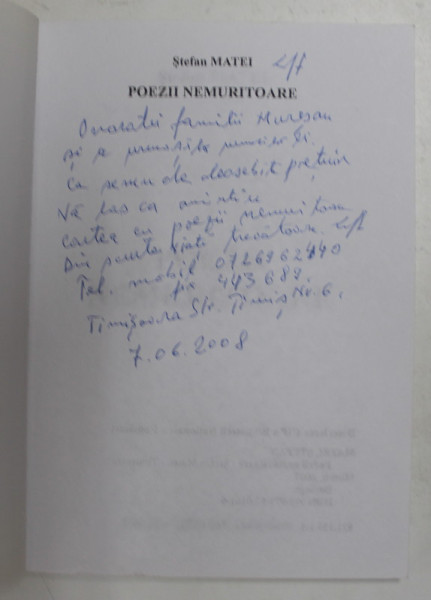 Ștefan MATEI
POEZII NEMURITOARE
Onoratii familii Muresan
și a urmașilor
Ca semn de deosebită prețuire
Vă las ca amintire
cartea cu poezii nemuritoare
Din scurta viață trecătoare.
Tel. mobil 0726962440
fix 443689.
Timișoara Str. Timiș Nr. 6.
7.06.2008